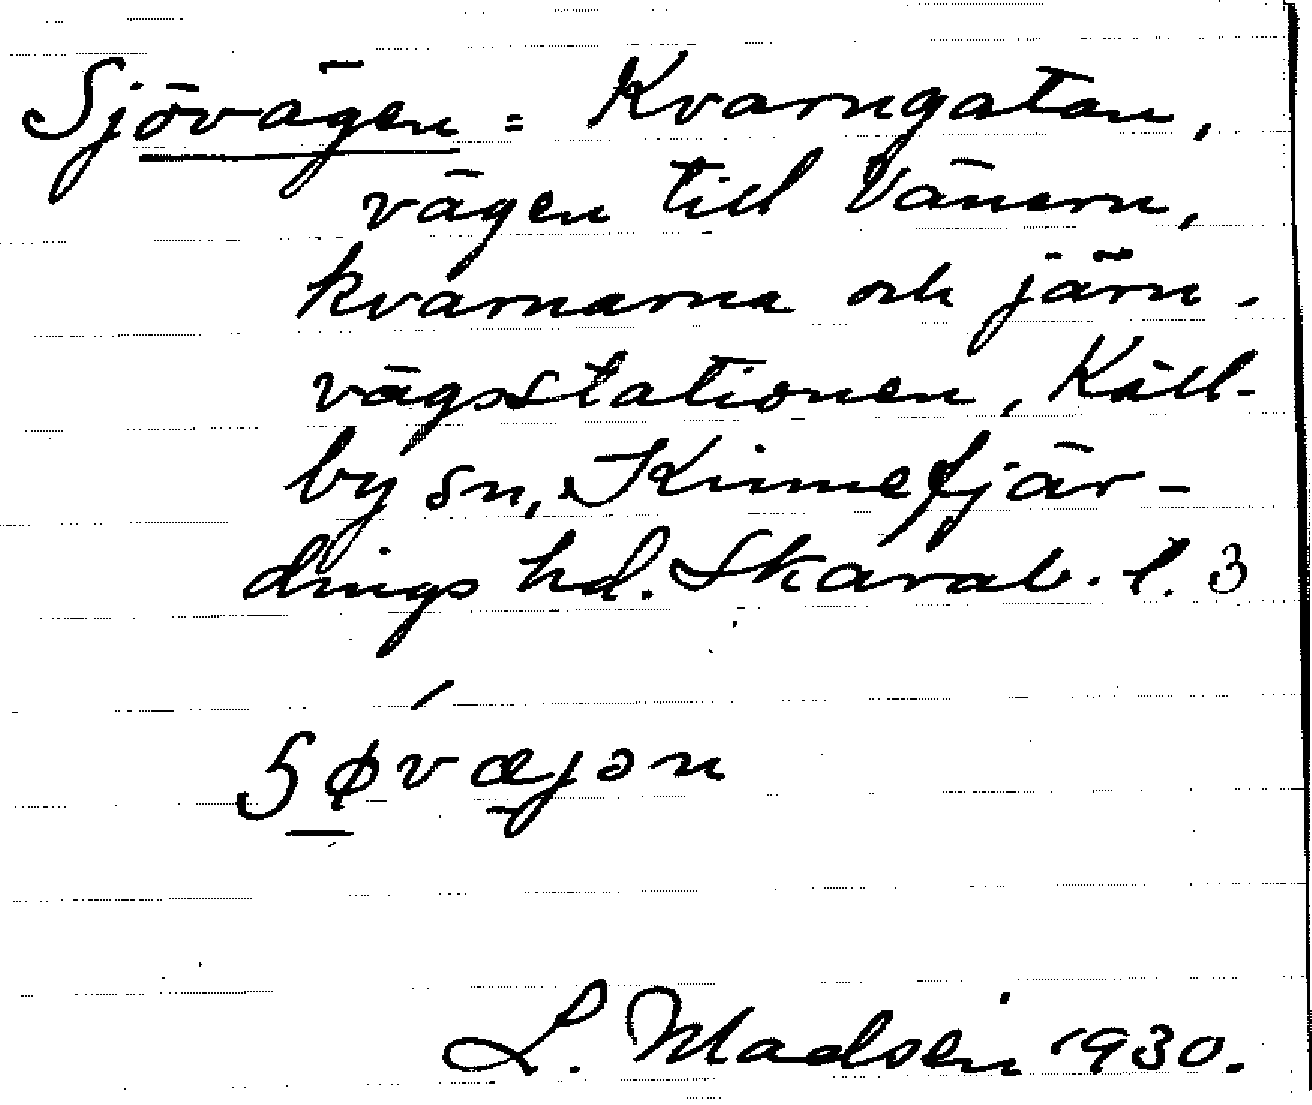 Sjövägen = Kvarngatan,
vägen till Vänern,
kvarnarna och järn-
vägsstationen, Käll-
by sn, Kinnefjär-
dings hd. Skarab. l. 3
Søvæjən
L. Madsén 1930.